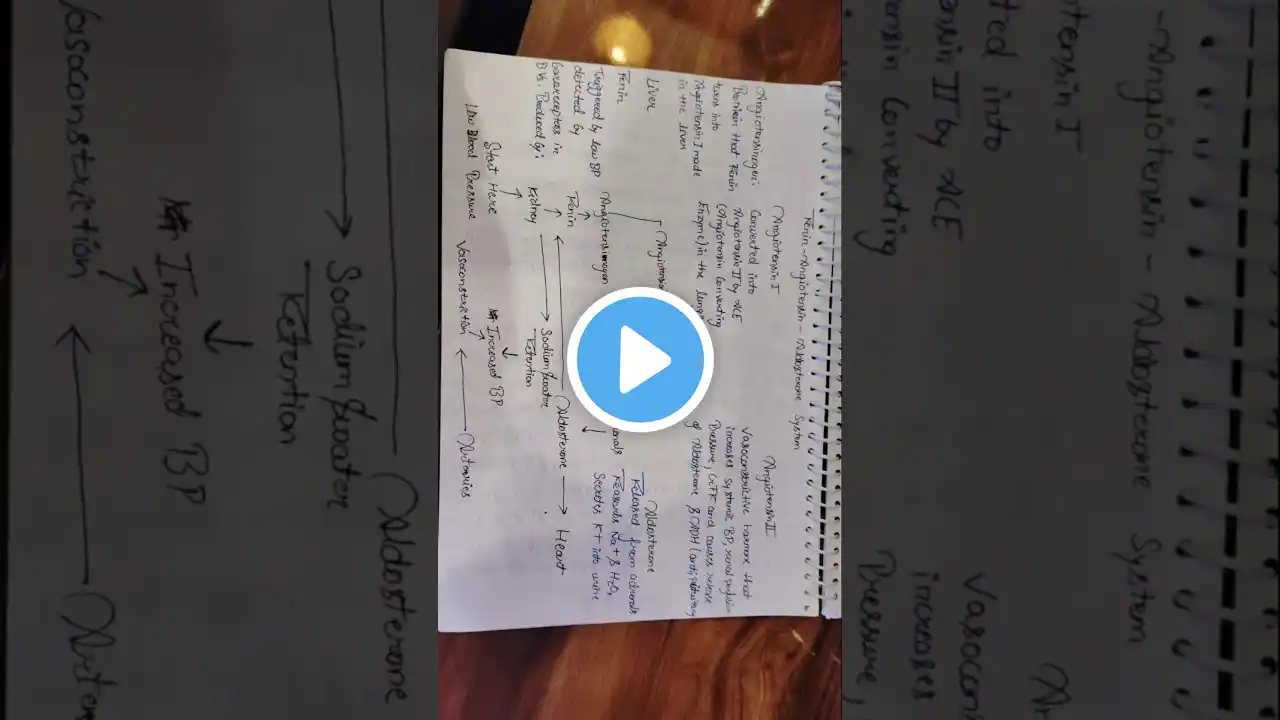 Renin-Angiotensin-Aldosterone System
Angiotensinogen:
Protein that Renin
turns into
Angiotensin I made
in the liver
Angiotensin I
Converted into
Angiotensin II by ACE
(Angiotensin Converting
Enzyme) in the lungs
Angiotensin II
Vasoconstrictive hormone that
increases systemic BP, renal perfusion
Pressure, GFR and causes release
of Aldosterone & ADH (antipituitary
Liver
Renin
Triggered by low BP
detected by
baroreceptors in
Produced by:
Angiotensinogen
Renin
Kidney
Start Here
Low Blood Pressure
Aldosterone
Released from adrenals
Reabsorbs Na+ & H2O,
Secretes K+ into urine
Aldosterone
Heart
Sodium & water
Retention
Increased BP
Vasoconstriction
Arteries
-Angiotensin-Aldosterone System
Sodium & water
Retention
Increased BP
Vasoconstriction
Aldosterone
increases
Pressure,